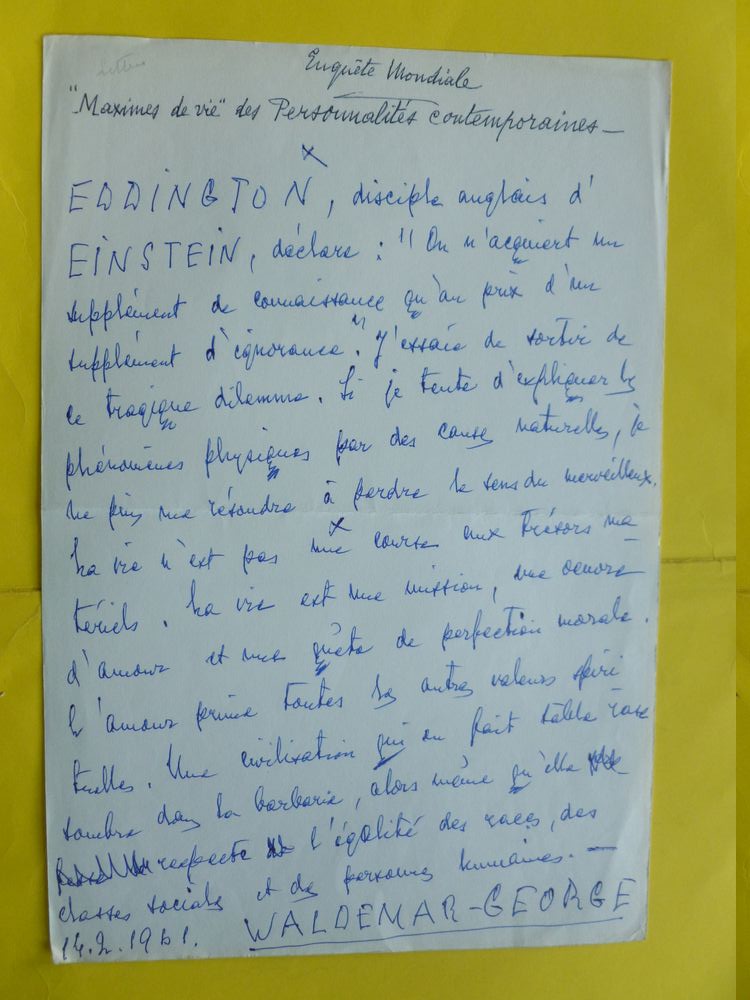 Lettre
Enquête Mondiale
"Maximes de vie" des Personnalités contemporaines —
x
EDDINGTON, disciple anglais d'
EINSTEIN, déclare : "On n'acquiert un
supplément de connaissance qu'au prix d'un
supplément d'ignorance". J'essaie de sortir de
ce tragique dilemme. Si je tente d'expliquer les
phénomènes physiques par des causes naturelles, je
ne puis me résoudre à perdre le sens du merveilleux.
La vie n'est pas une course aux trésors ma
tériels. La vie est une mission, une oeuvre
d'amour et une quête de perfection morale.
L'amour prime toutes les autres valeurs spiri
tuelles. Une civilisation qui en fait table rase
sombre dans la barbarie, alors même qu'elle
respecte l'égalité des races, des
classes sociales et des personnes humaines. —
14.2.1961. WALDEMAR-GEORGE